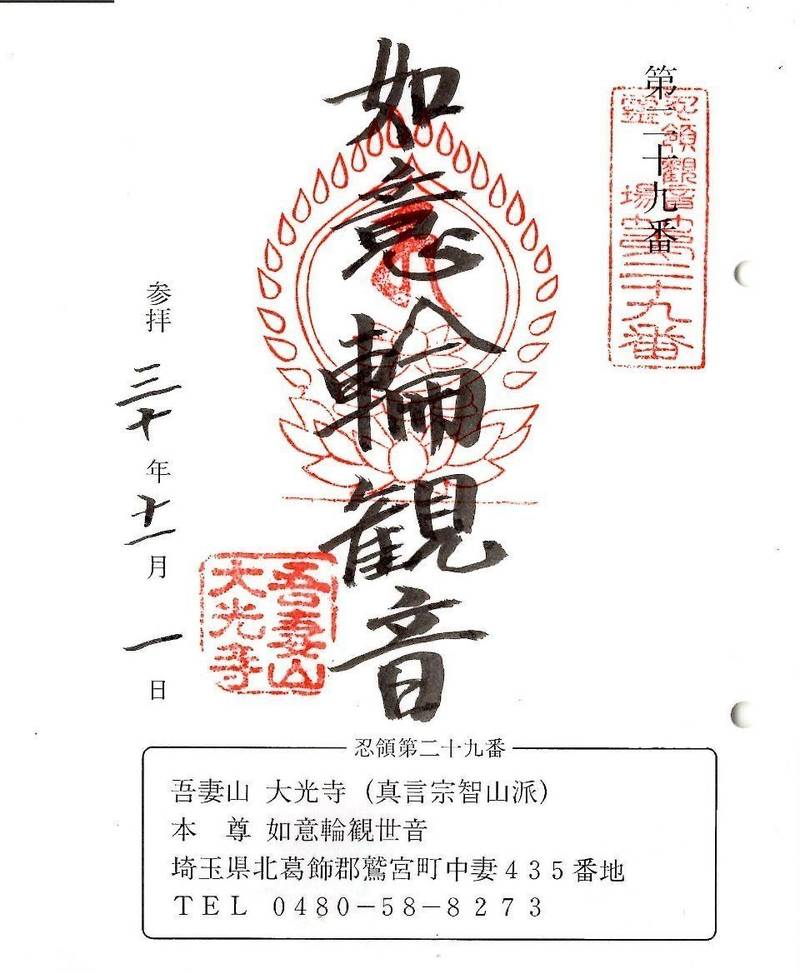 第二十九番
忍領観音
霊場第二十九番
如意輪観音
参拝 三十年十一月一日
吾妻山
大光寺
忍領第二十九番
吾妻山 大光寺（真言宗智山派）
本 尊 如意輪観世音
埼玉県北葛飾郡鷲宮町中妻４３５番地
ＴＥＬ ０４８０－５８－８２７３